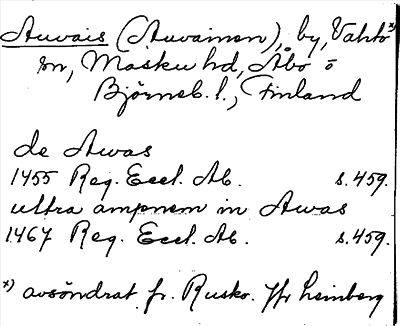 Auvais (Auvainen), by, Vahto x)
sn, Masku hd, Åbo o
Björneb. l., Finland
de Awas
1455 Reg. Eccl. Ab. s. 459.
ultra ampnem in Awas
1467 Reg. Eccl. Ab. s. 459.
x) avsöndrat fr. Rusko. Jfr Leinberg